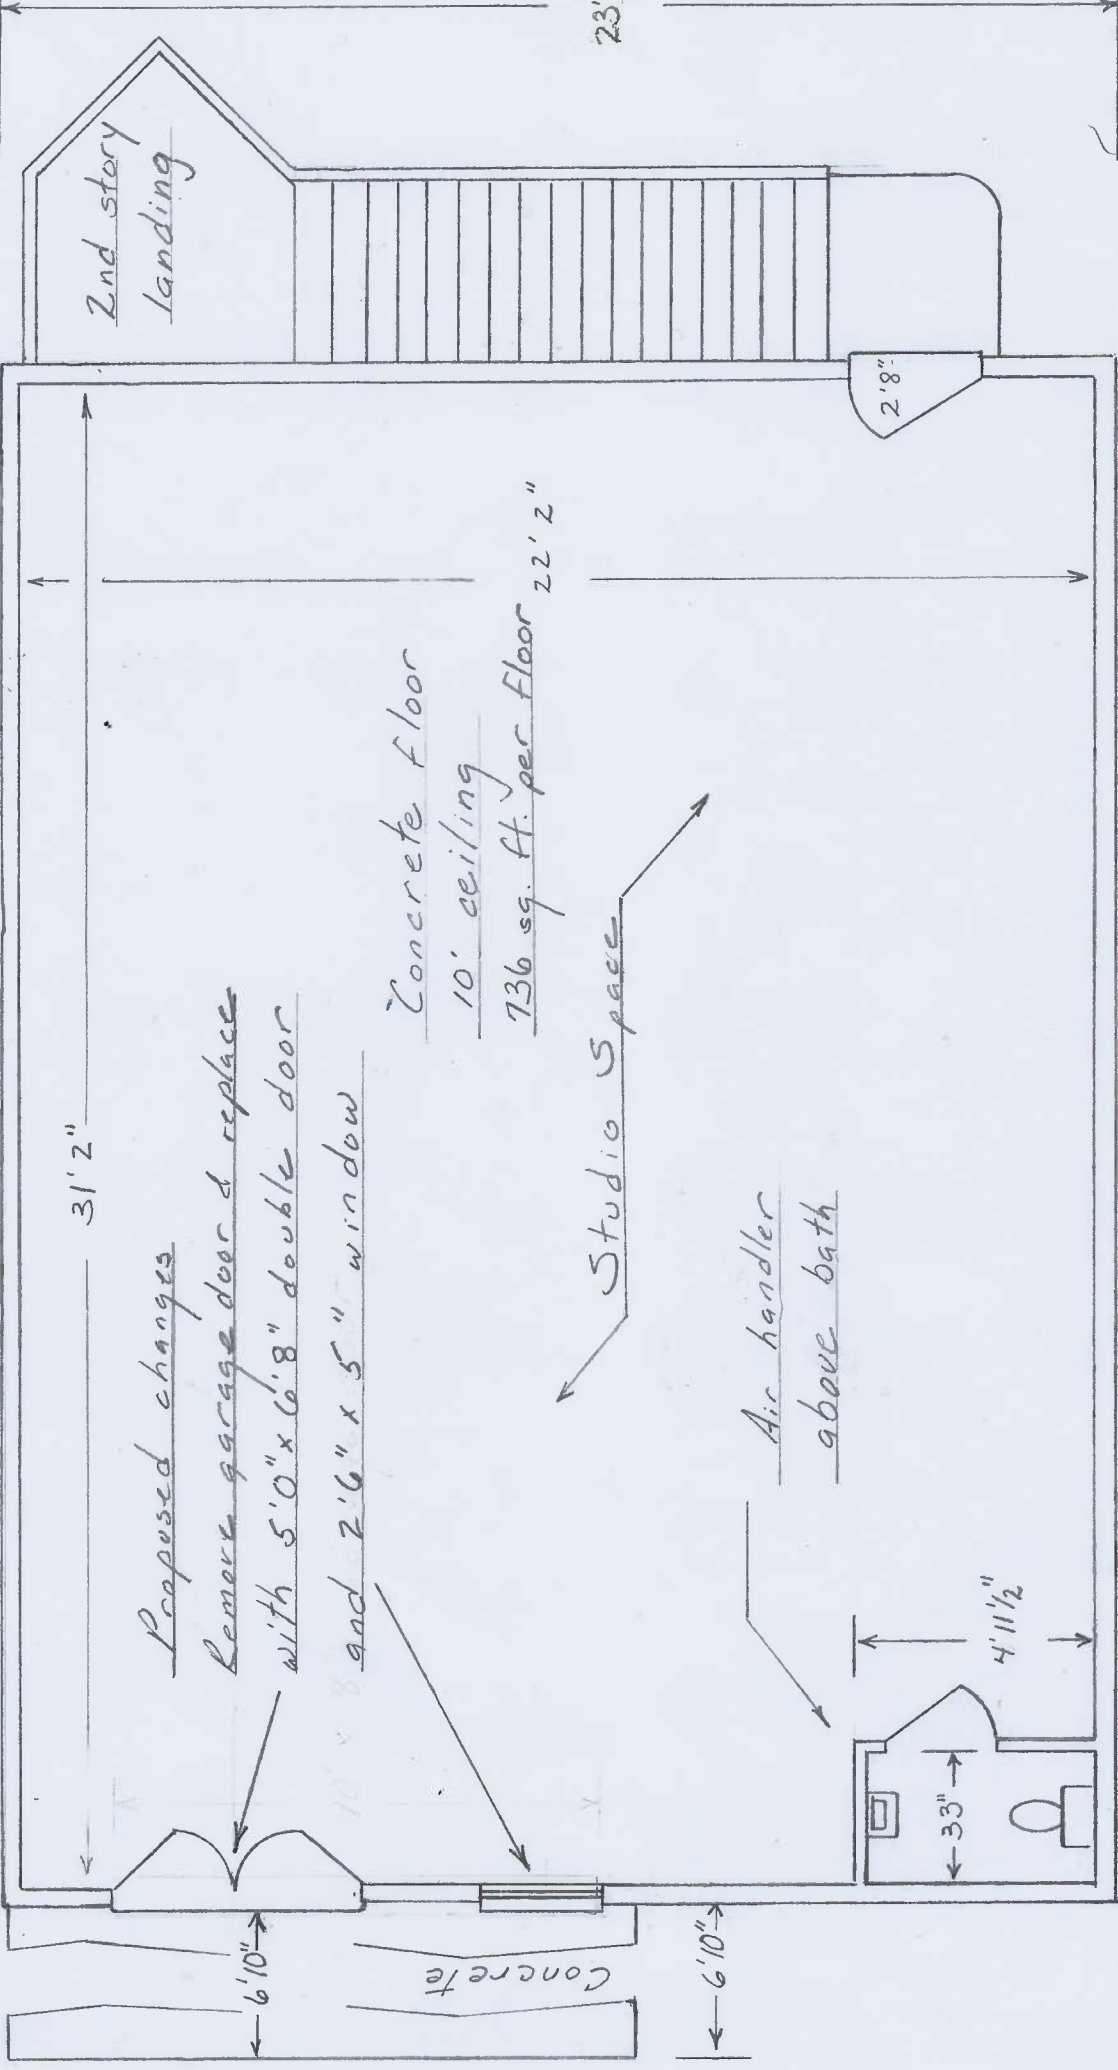 23'
2nd story
landing
31' 2"
22' 2"
2'8"
Proposed changes
Remove garage door & replace
with 5'0" x 6'8" double door
and 2'6" x 5" window
Concrete floor
10' ceiling
736 sq. ft. per floor
Studio Space
Air handler
above bath
4'11½"
33"
6'10"
Concrete
6'10"